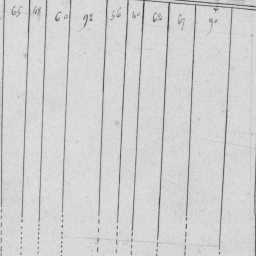 65 48 60 92 56 40 62 67 90